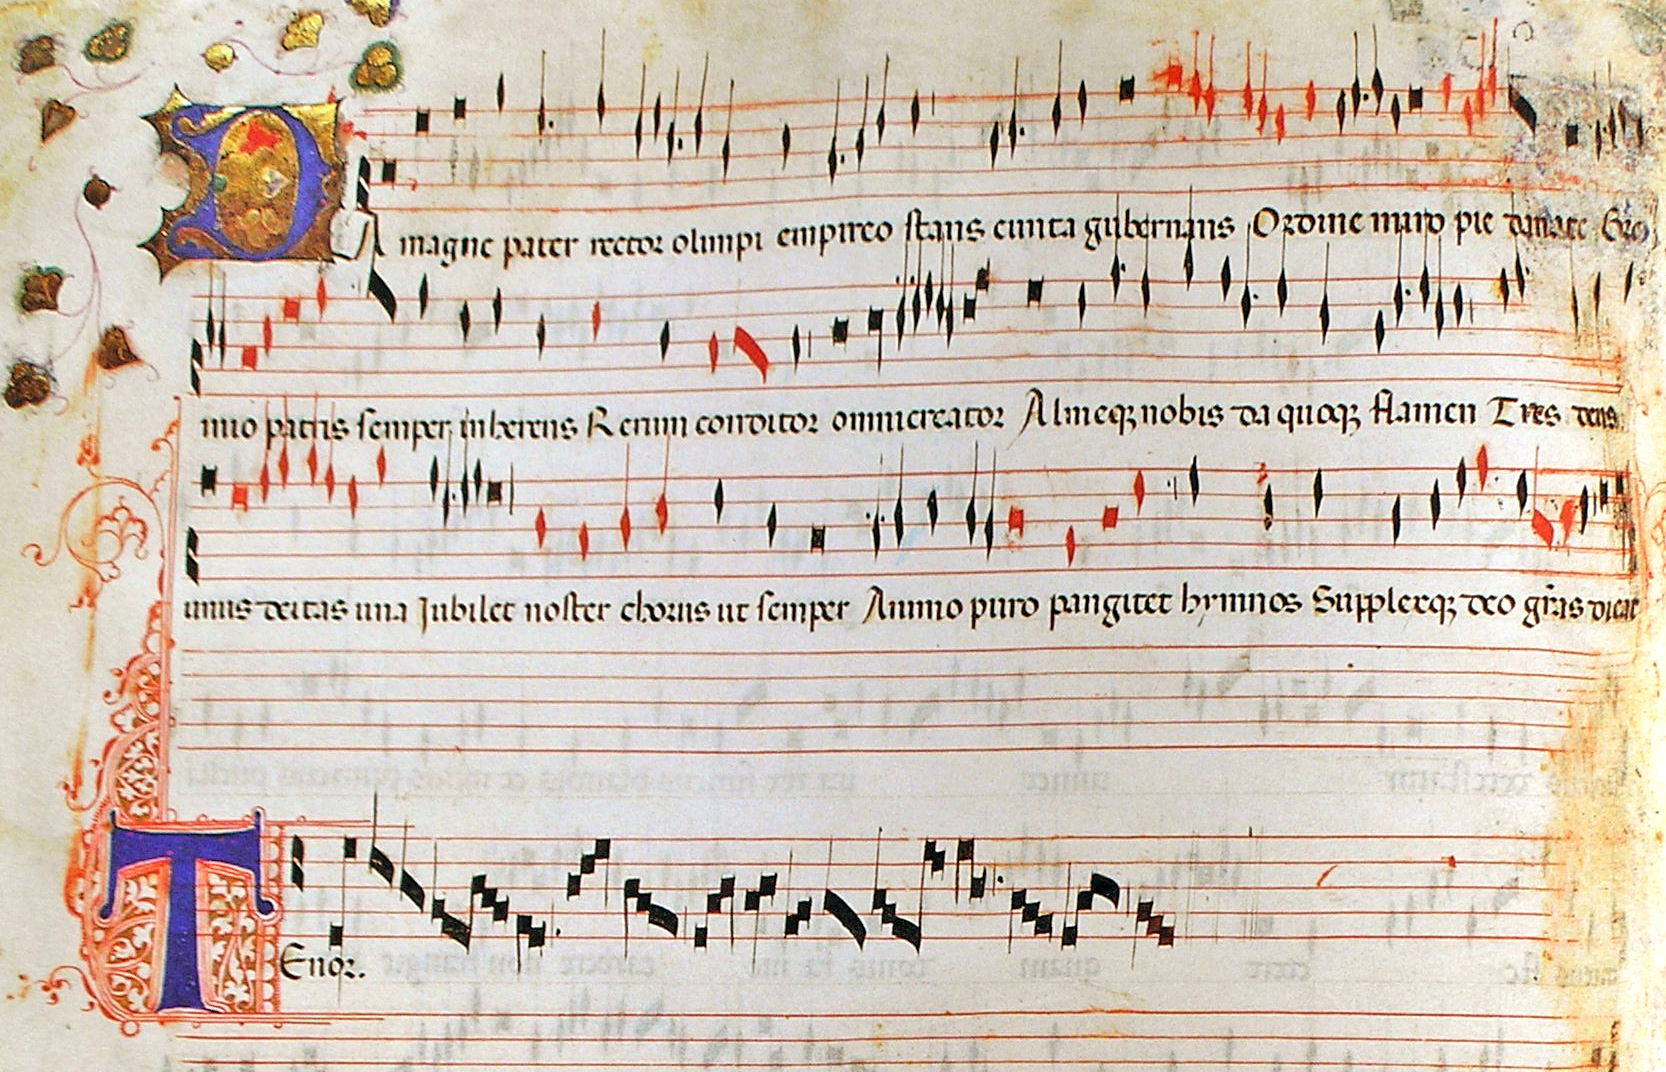 DA magne pater rector olimpi empireo stans cunta gubernans Ordine miro pie donate
semper inherens Rerum conditor omnicreator Almeqʒ nobis da quoqʒ flamen Tres deus
unus deitas una Jubilet noster chorus ut semper Animo puro pangitet hymnos Supplexqʒ deo gr̃as dicat
TEnor.